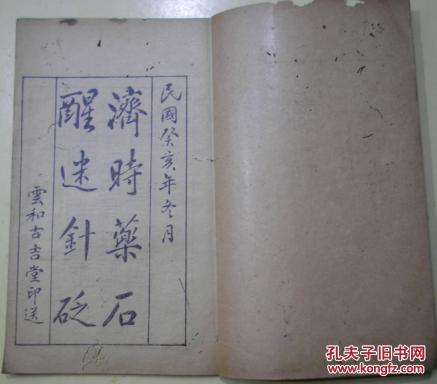 民國癸亥年冬月
濟時藥石
醒迷針砭
雲和古吉堂印送
孔夫子旧书网